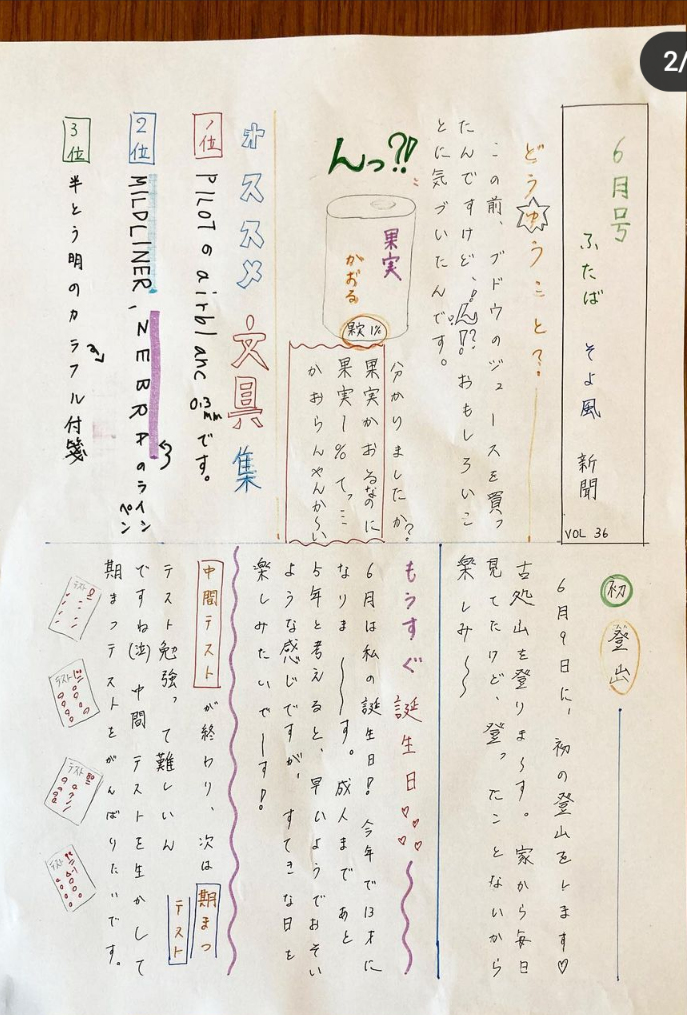 2/
6月号
ふたば そよ風 新聞
VOL 36
どうゆうこと?
この前、ブドウのジュースを買っ
たんですけど、ん!? おもしろいこ
とに気づいたんです。
んっ?!
果実
かおる
果実1%
分かりましたか?
果実かおるなのに
果実1%てっ…
かおらんやんか〜い
オススメ 文具集
1位 PILOTの airblanc 0.3mmです。
2位 MILDLINER, ZEBRAのラインペン
3位 半とう明のカラフル付箋
初 登山
6月9日に、初の登山をします♡
古処山を登りま〜す。家から毎日
見てたけど、登ったことないから
楽しみ〜
もうすぐ誕生日♡♡♡♡
6月は私の誕生日!今年で13才に
なりま〜〜す。成人まであと
5年と考えると、早いようでおそい
ような感じですが、すてきな日を
楽しみたいで〜す!
中間テストが終わり、次は期まつ
テスト
テスト勉強って難しいん
ですね(泣)中間テストを生かして
期まつテストをがんばりたいです。
テスト
テスト
テスト
テスト